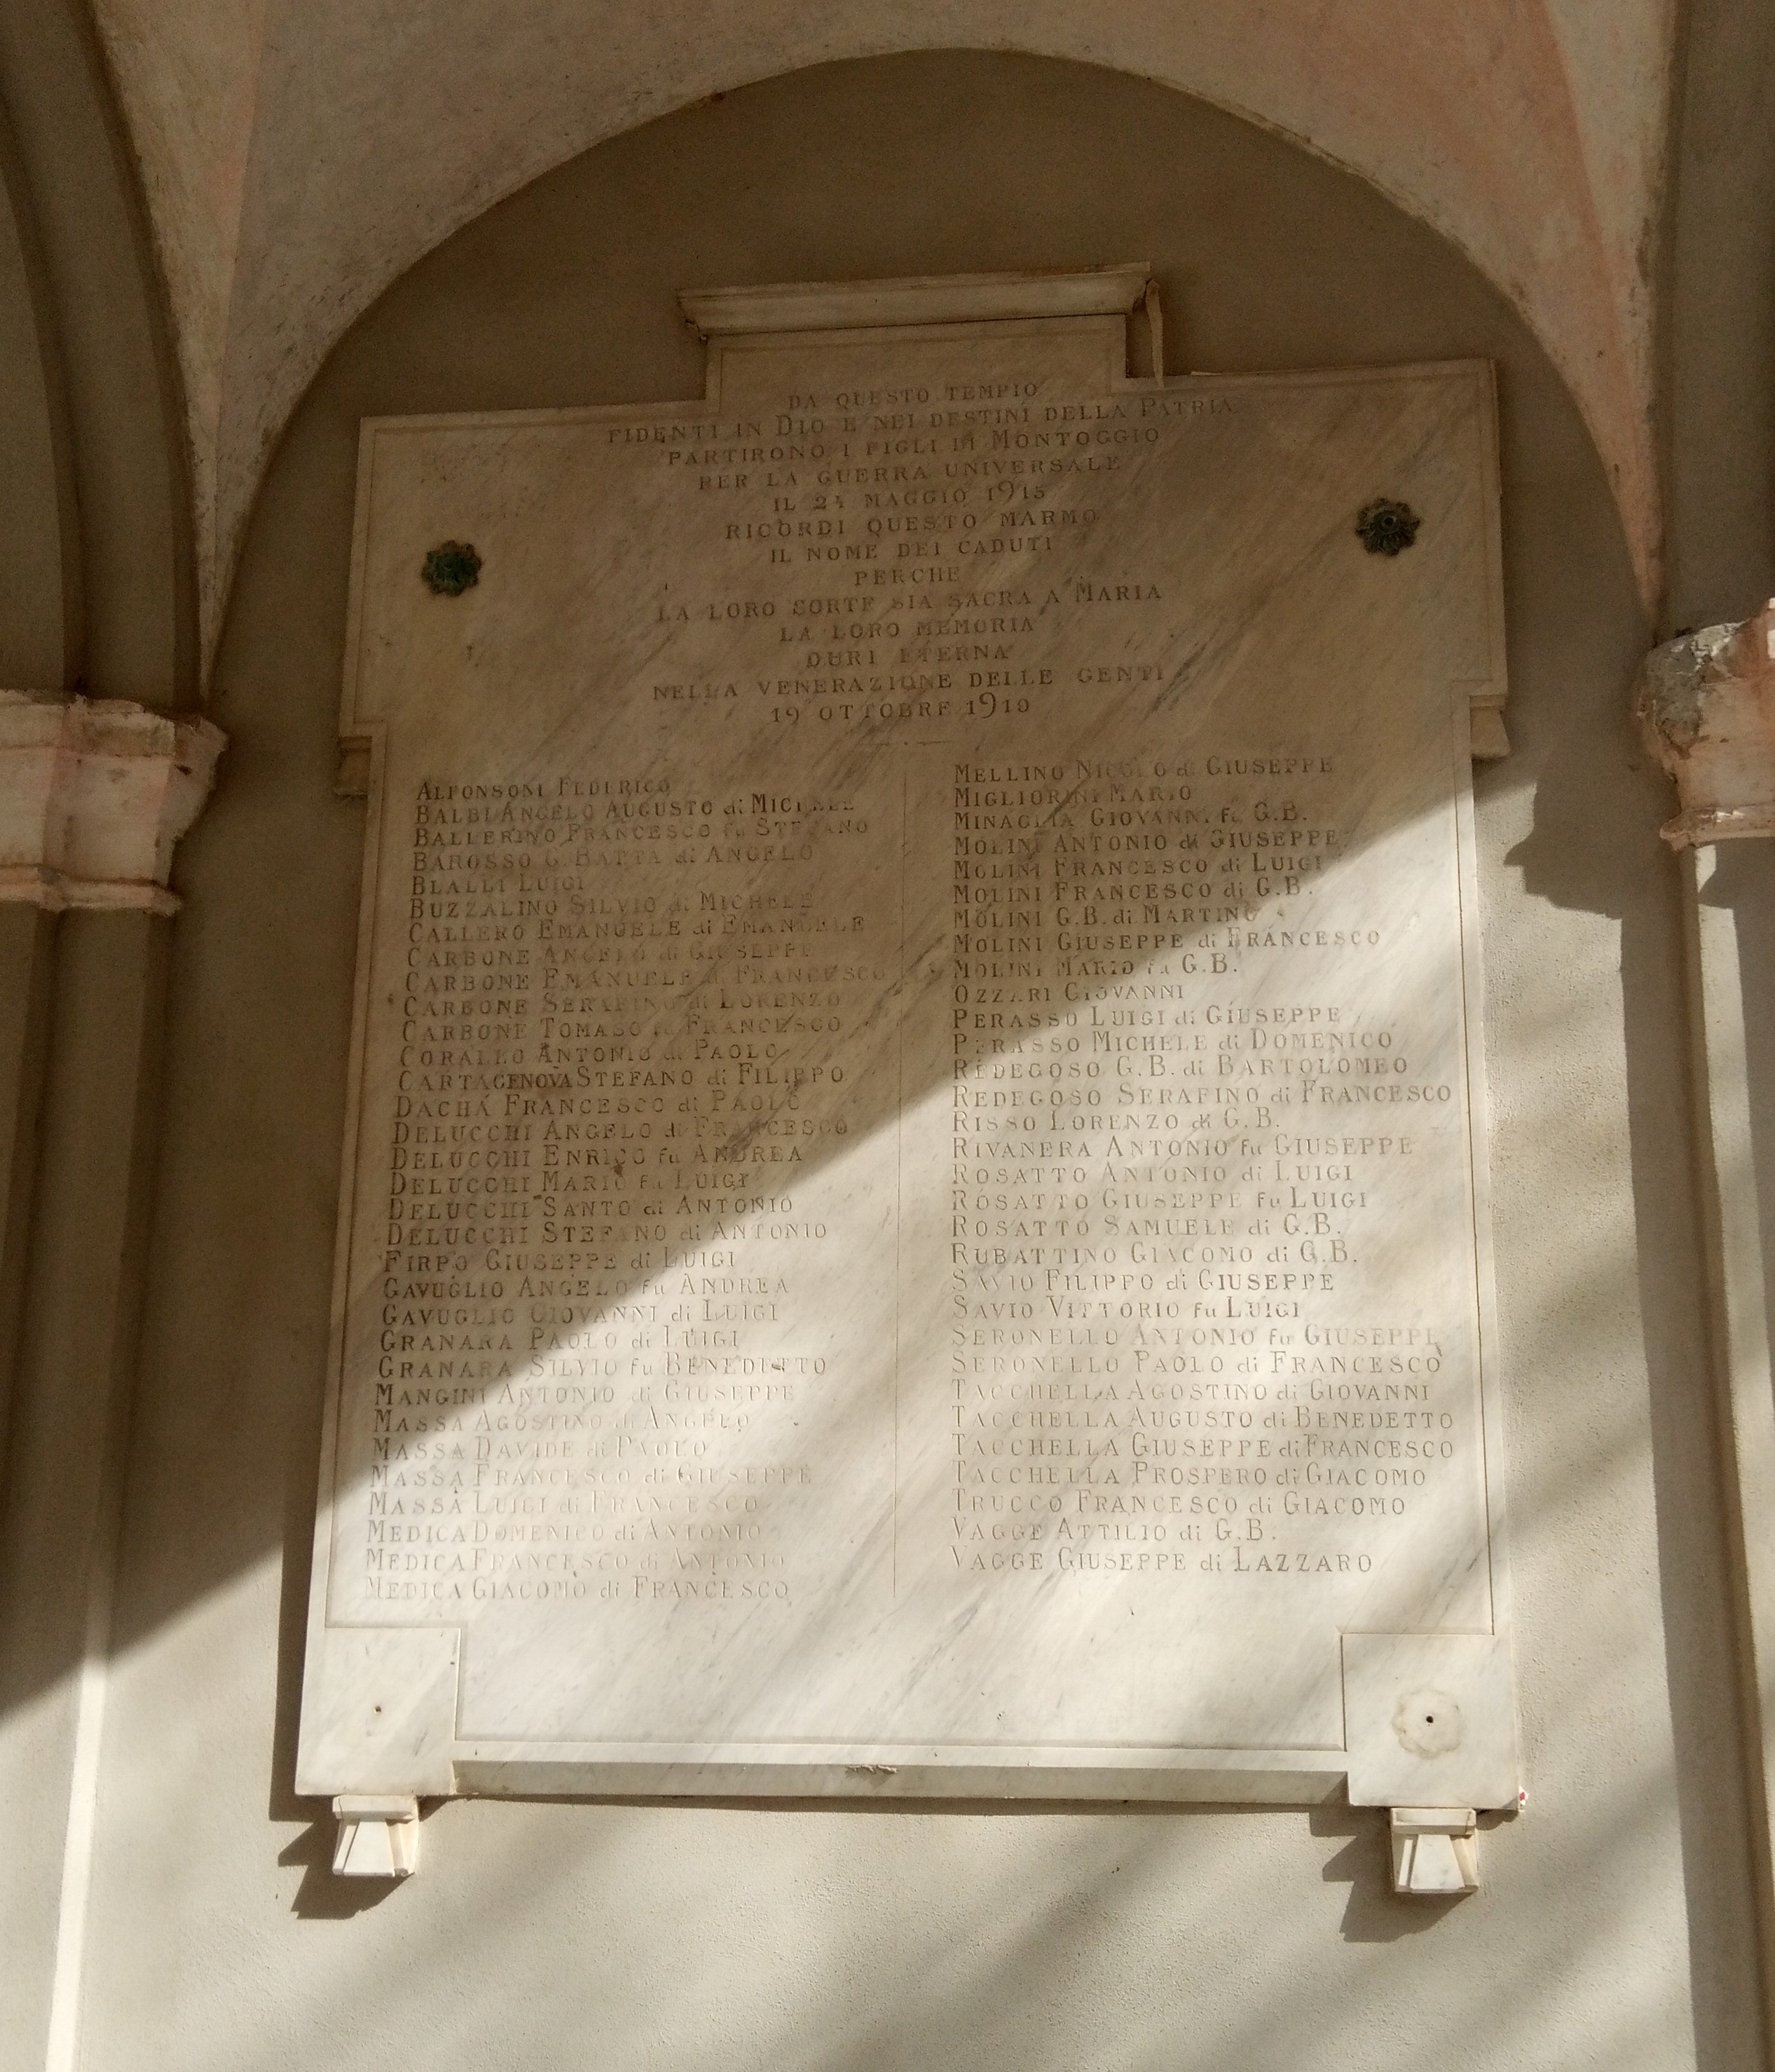 DA QUESTO TEMPIO
FIDENTI IN DIO E NEI DESTINI DELLA PATRIA
PARTIRONO I FIGLI DI MONTOGGIO
PER LA GUERRA UNIVERSALE
IL 24 MAGGIO 1915
RICORDI QUESTO MARMO
IL NOME DEI CADUTI
PERCHE
LA LORO SORTE SIA SACRA A MARIA
LA LORO MEMORIA
DURI ETERNA
NELLA VENERAZIONE DELLE GENTI
19 OTTOBRE 1919
ALFONSONI FEDERICO
BALBI ANGELO AUGUSTO di MICHELE
BALLERINO FRANCESCO fu STEFANO
BAROSSO G. BATTA di ANGELO
BLALLI LUIGI
BUZZALINO SILVIO di MICHELE
CALLERO EMANUELE di EMANUELE
CARBONE ANGELO di GIUSEPPE
CARBONE EMANUELE di FRANCESCO
CARBONE SERAFINO di LORENZO
CARBONE TOMASO FRANCESCO
CORALLO ANTONIO di PAOLO
CARTAGENOVA STEFANO di FILIPPO
DACHÁ FRANCESCO di PAOLO
DELUCCHI ANGELO di FRANCESCO
DELUCCHI ENRICO fu ANDREA
DELUCCHI MARIO fu LUIGI
DELUCCHI SANTO di ANTONIO
DELUCCHI STEFANO di ANTONIO
FIRPO GIUSEPPE di LUIGI
GAVUGLIO ANGELO fu ANDREA
GAVUGLIO GIOVANNI di LUIGI
GRANARA PAOLO di LUIGI
GRANARA SILVIO fu BENEDETTO
MANGINI ANTONIO di GIUSEPPE
MASSA AGOSTINO di ANGELO
MASSA DAVIDE di PAOLO
MASSA FRANCESCO di GIUSEPPE
MASSA LUIGI di FRANCESCO
MEDICA DOMENICO di ANTONIO
MEDICA FRANCESCO di ANTONIO
MEDICA GIACOMO di FRANCESCO
MELLINO NICOLO di GIUSEPPE
MIGLIORINI MARIO
MINAGLIA GIOVANNI fu G.B.
MOLINI ANTONIO di GIUSEPPE
MOLINI FRANCESCO di LUIGI
MOLINI FRANCESCO di G.B.
MOLINI G.B. di MARTINO
MOLINI GIUSEPPE di FRANCESCO
MOLINI MARIO fu G.B.
OZZARI GIOVANNI
PERASSO LUIGI di GIUSEPPE
PERASSO MICHELE di DOMENICO
REDEGOSO G.B. di BARTOLOMEO
REDEGOSO SERAFINO di FRANCESCO
RISSO LORENZO di G.B.
RIVANERA ANTONIO fu GIUSEPPE
ROSATTO ANTONIO di LUIGI
ROSATTO GIUSEPPE fu LUIGI
ROSATTO SAMUELE di G.B.
RUBATTINO GIACOMO di G.B.
SAVIO FILIPPO di GIUSEPPE
SAVIO VITTORIO fu LUIGI
SERONELLO ANTONIO fu GIUSEPPE
SERONELLO PAOLO di FRANCESCO
TACCHELLA AGOSTINO di GIOVANNI
TACCHELLA AUGUSTO di BENEDETTO
TACCHELLA GIUSEPPE di FRANCESCO
TACCHELLA PROSPERO di GIACOMO
TRUCCO FRANCESCO di GIACOMO
VAGGE ATTILIO di G.B.
VAGGE GIUSEPPE di LAZZARO